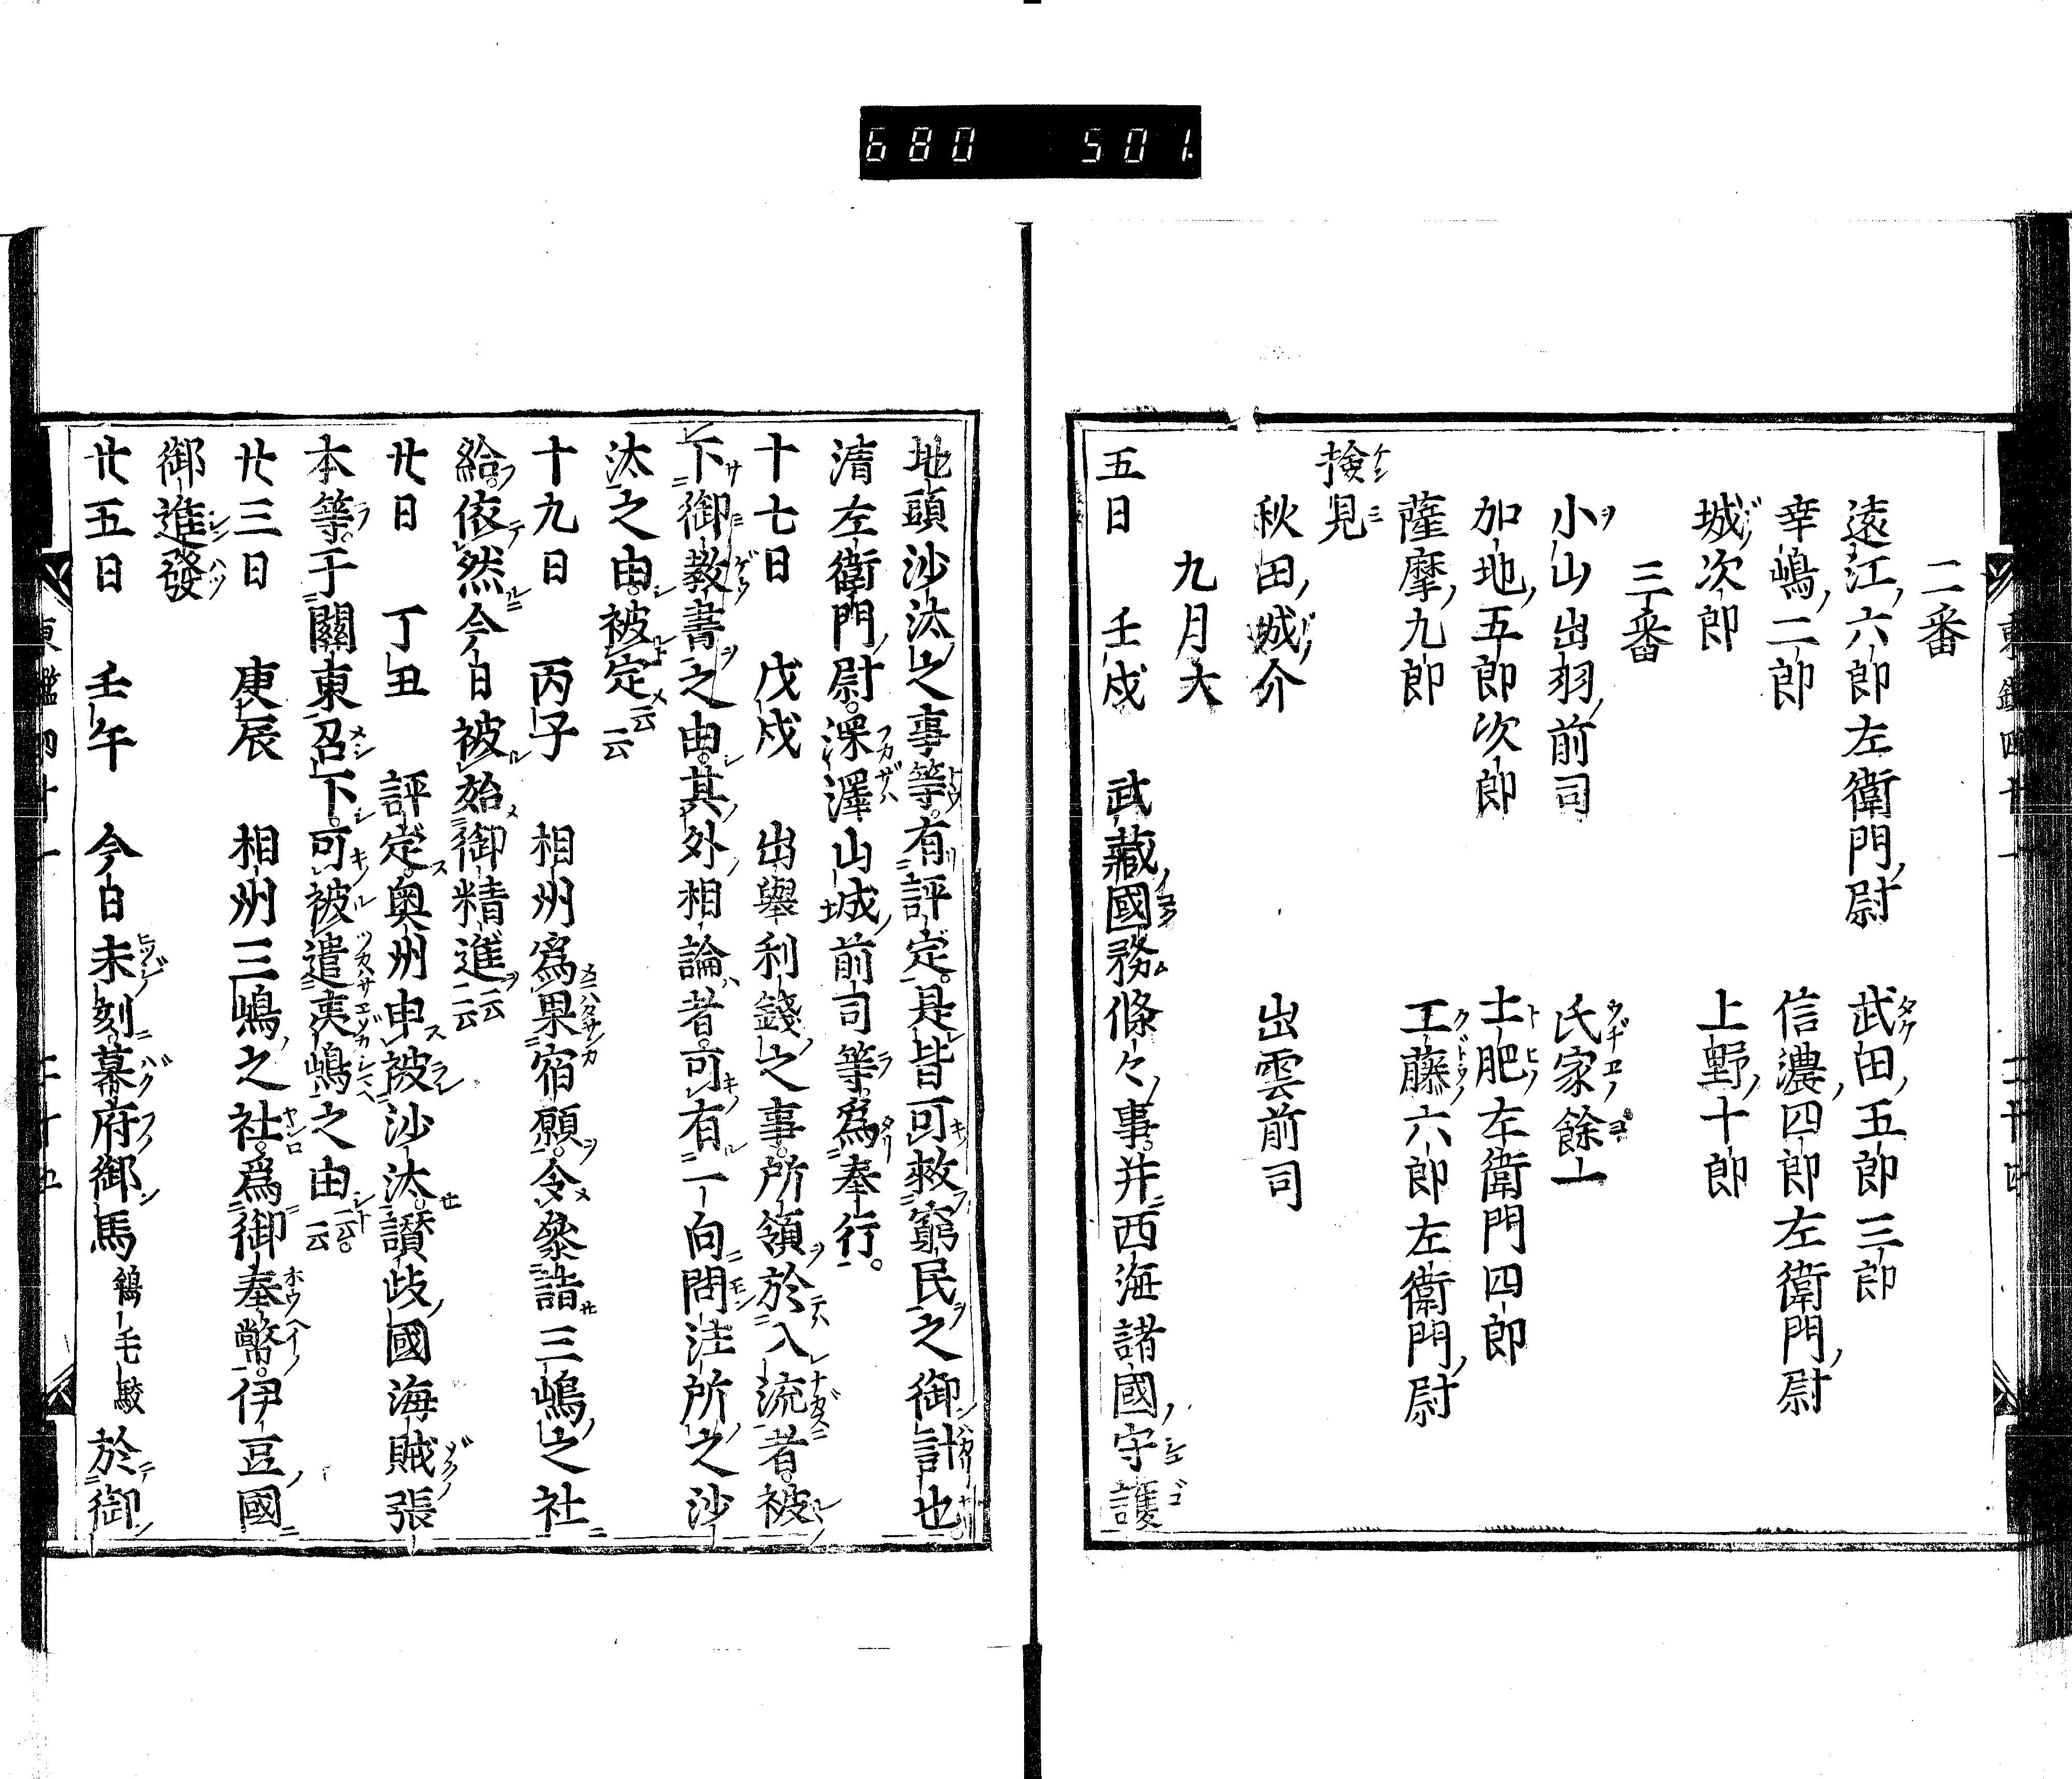 680 501.
二番
遠江六郎左衛門尉 武田五郎三郎
幸嶋二郎 信濃四郎左衛門尉
城次郎 上野十郎
三番
小山出羽前司 氏家餘一
加地五郎次郎 土肥左衛門四郎
薩摩九郎 工藤六郎左衛門尉
撿見
秋田城介 出雲前司
九月大
五日 壬戌 武藏國務條々事并西海諸國守護
地頭沙汰之事等有評定是皆可救窮民之御計也
清左衛門尉深澤山城前司等爲奉行
十七日 戊戌 出舉利錢之事所領於入流者被
下御教書之由其外相論者可有一向問注所之沙
汰之由被定云云
十九日 丙子 相州爲果宿願令參詣三嶋之社
給依然今日被始御精進云云
廿日 丁丑 評定奥州申被沙汰讃岐國海賊張
本等于關東召下可被遣夷嶋之由云云
廿三日 庚辰 相州三嶋之社爲御奉幣伊豆國
御進發
廿五日 壬午 今日未刻幕府御馬鵇毛駮於御